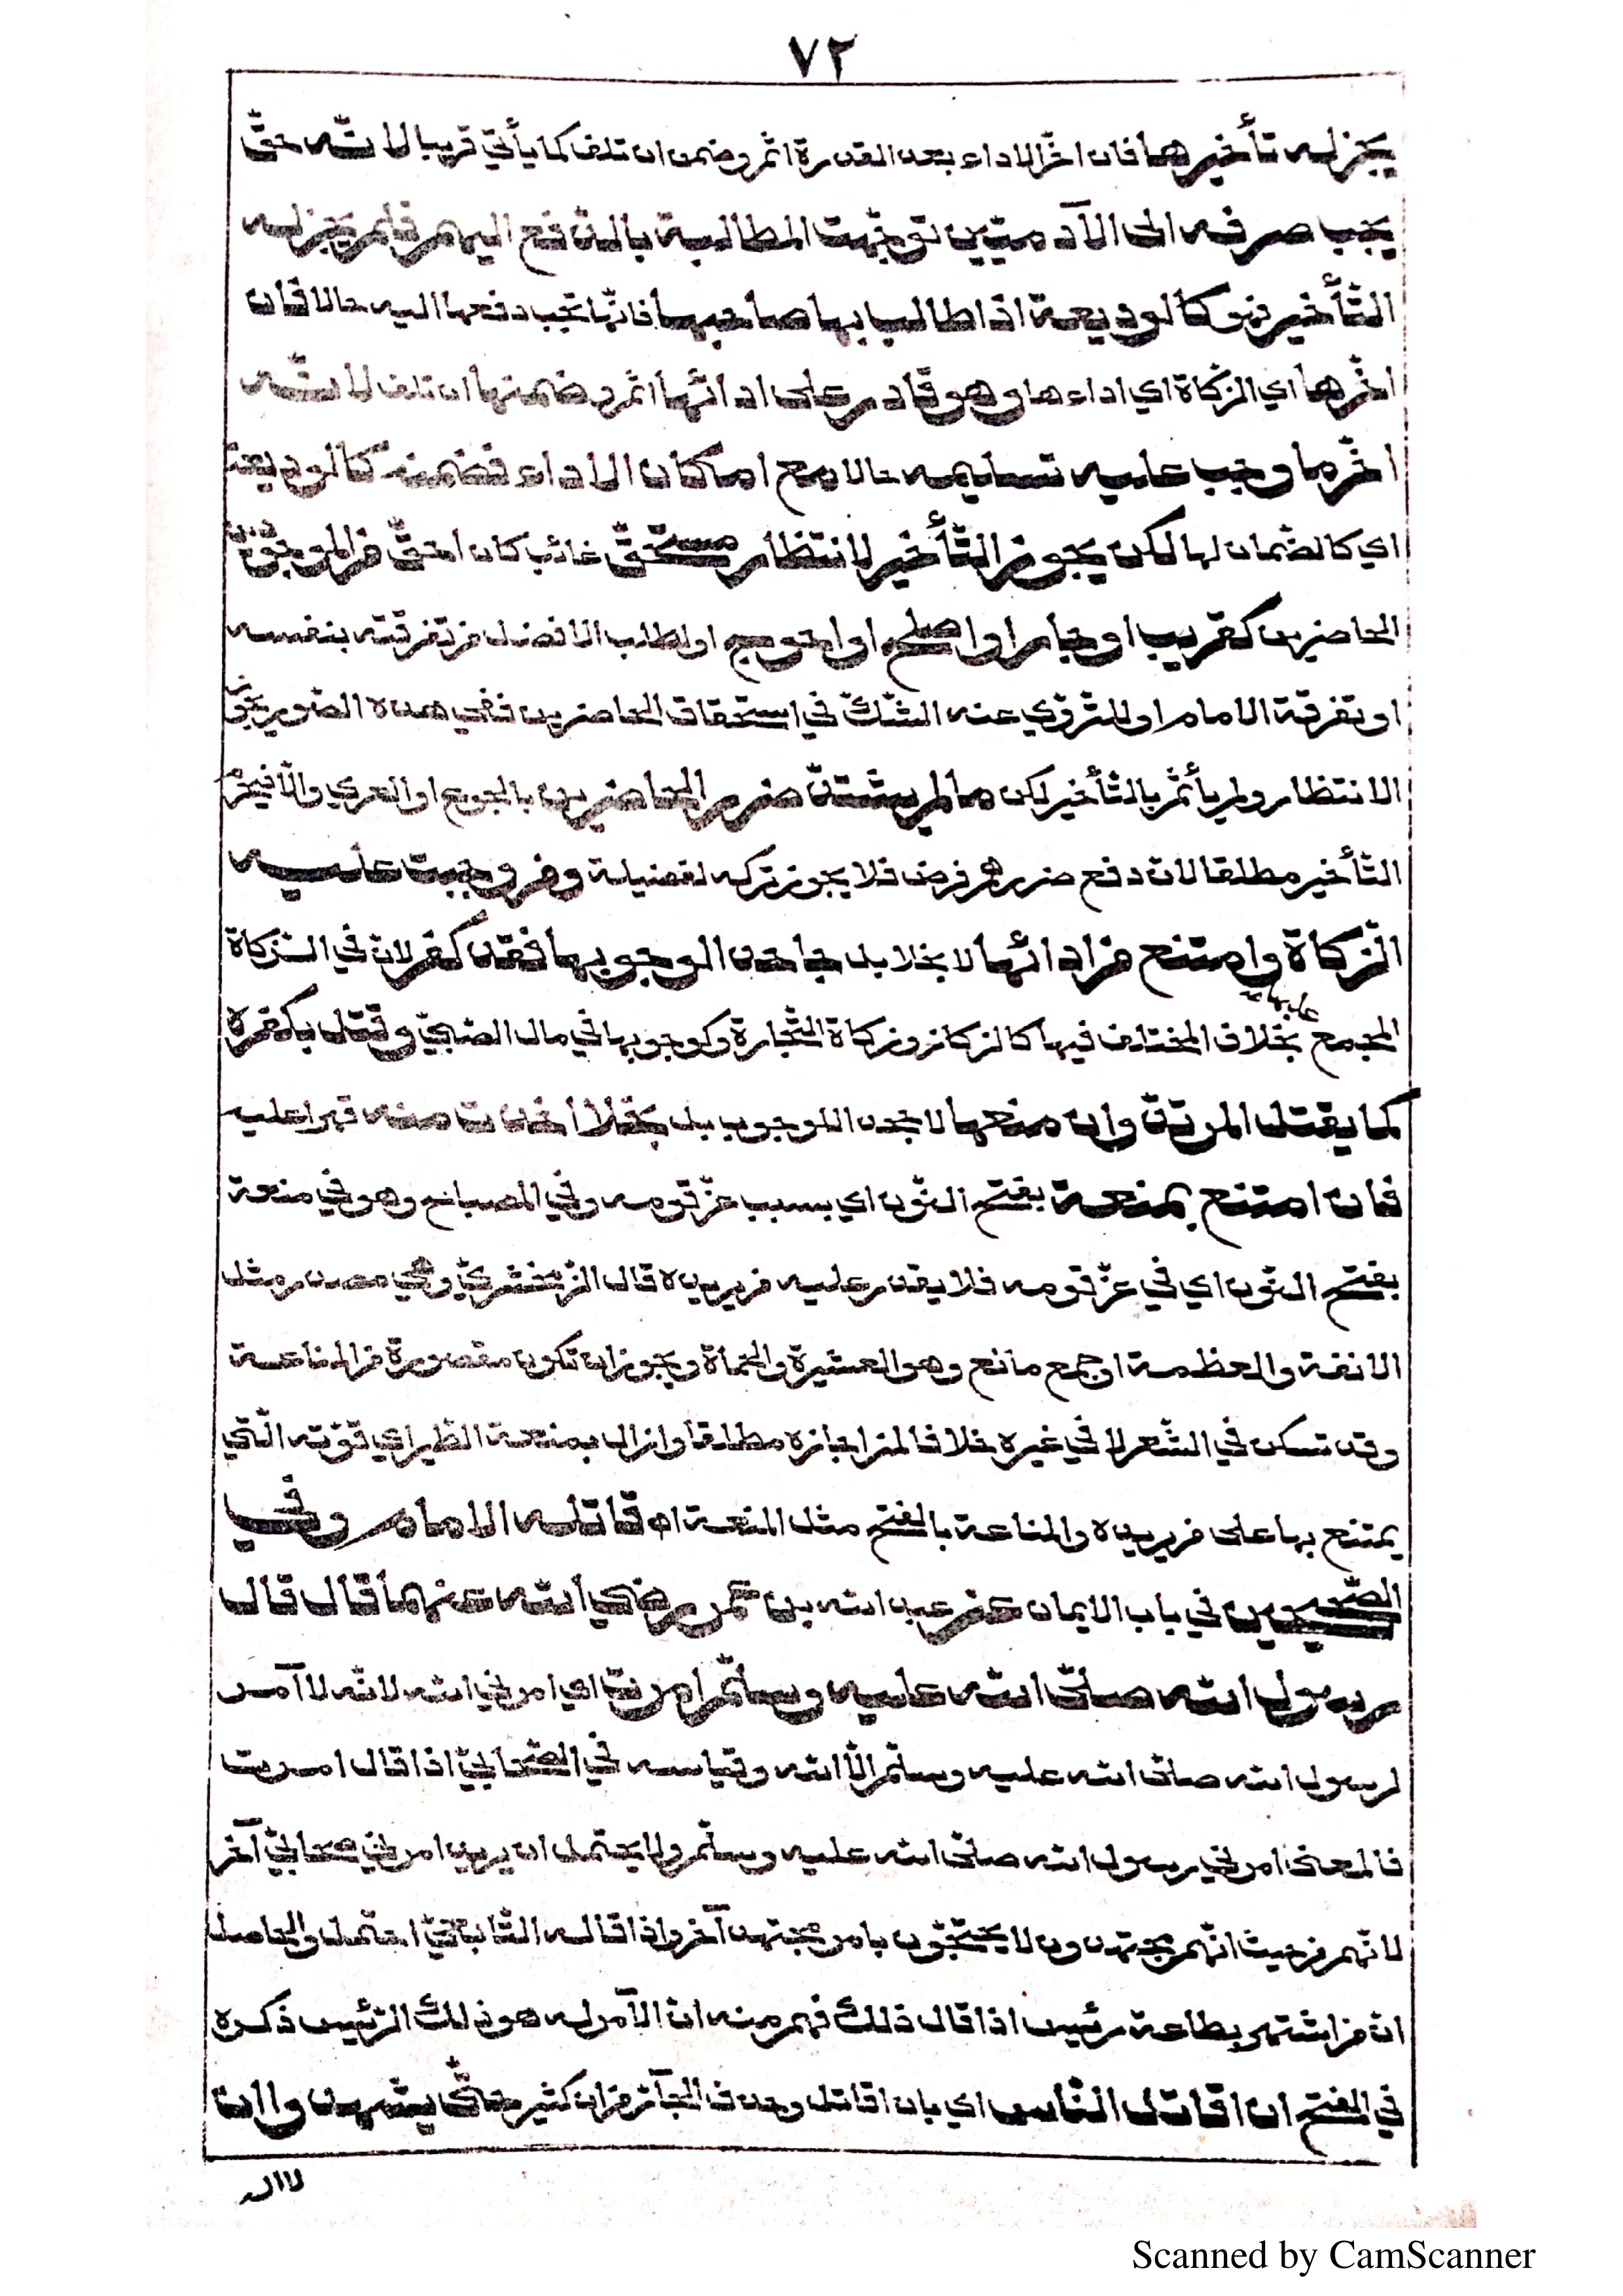 ٧٢
يجز له تأخيرها فان اخّر الاداء بعد القدرة اثم وضمن ان تلف كما يأتي قريبا لانّه حقّ
يجب صرفه الى الآدميّين توجّهت المطالبة بالدّفع اليهم فلم يجز له
التّأخير فهو كالوديعة اذا طالب بها صاحبها فانّها تجب دفعها اليه حالا فان
اخّرها اي الزّكاة اي اداءها وهو قادر على ادائها اثم وضمنها ان تلف لانّه
اخّر ما وجب عليه تسليمه حالا مع امكان الاداء فضمنه كالوديعة
اي كالضّمان لها لكن يجوز التّأخير لانتظار مستحقّ غائب كان احقّ من الموجودين
الحاضرين كقريب او جار او اصلح او احوج او لطلب الافضل من تفرقته بنفسه
او تفرقة الامام او للتّروّي عند الشّكّ في استحقاق الحاضرين ففي هذه الصّور يجوز
الانتظار ولم يأثم بالتّأخير لكن ما لم يشتدّ ضرر الحاضرين بالجوع او العري والّا فيحرم
التّأخير مطلقا لان دفع ضررهم فرض فلا يجوز تركه لفضيلة ومن وجبت عليه
الزّكاة وامتنع من ادائها لا بخلا بل جاحدا لوجوبها فقد كفر لان في الزّكاة
المجمع عليها بخلاف المختلف فيها كالركاز وزكاة التّجارة وكوجوبها في مال الصّبيّ وقتل بكفره
كما يقتل المرتدّ وان منعها لا بجحد الوجوب بل بخلا أخذت منه قهرا عليه
فان امتنع بمنعة بفتح النّون اي بسبب عزّ قومه وفي المصباح وهو في منعة
بفتح النّون اي في عزّ قومه فلا يقدر عليه من يريده قال الزّمخشريّ وهي مصدر مثل
الانفة والعظمة او جمع مانع وهو العشيرة والحماة ويجوز ان تكون مقصورة من المناعة
وقد تسكن في الشّعر لا في غيره خلافا لمن اجازه مطلقا وازال بمنعة الطّير اي قوّته الّتي
يمتنع بها على من يريده والمناعة بالفتح مثل المنعة اه قاتله الامام وفي
الصّحيحين في باب الايمان عن عبد الله بن عمر رضي الله عنهما قال قال
رسول الله صلّى الله عليه وسلّم امرت اي امرني الله لانّه لا آمر
لرسول الله صلّى الله عليه وسلّم الّا الله وقياسه في الصّحابيّ اذا قال امرت
فالمعنى امرني رسول الله صلّى الله عليه وسلّم ولا يحتمل ان يريد امرني صحابيّ آخر
لانّهم من حيث انّهم مجتهدون لا يحتجّون بامر مجتهد آخر واذا قاله التّابعيّ احتمل والحاصل
انّ من اشتهر بطاعة رئيس اذا قال ذلك فهم منه انّ الآمر له هو ذلك الرّئيس ذكره
في الفتح ان اقاتل النّاس اي بان اقاتل وحذف الجارّ من ان كثير حتّى يشهدوا ان
لا اله